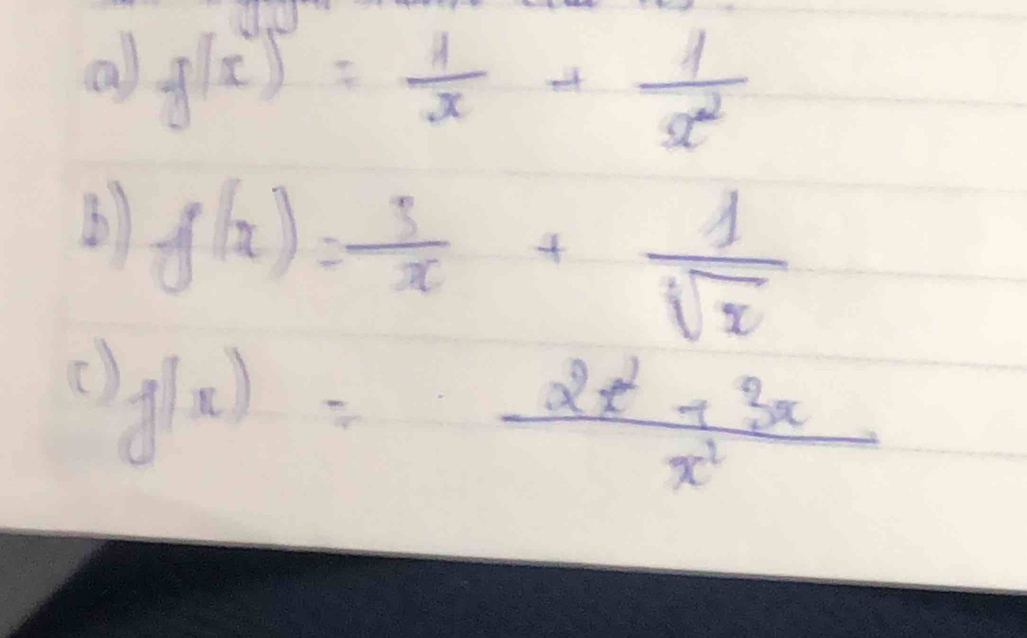 a) g(x) = 1/x + 1/x²
b) g(x) = 3/x + 1/∛x
c) g(x) = (2x² + 3x)/x²